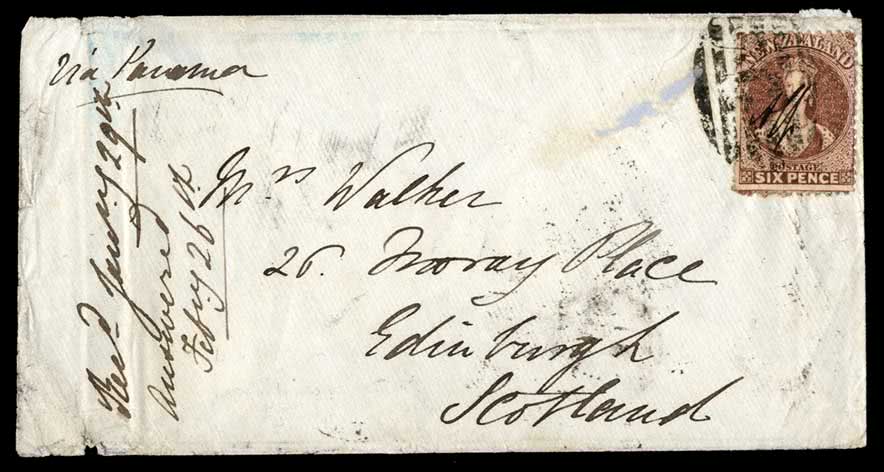 via Panama
NEW ZEALAND
POSTAGE
SIX PENCE
Mrs Walker
26. Moray Place
Edinburgh
Scotland
Recd. January 29th
Answered
Feby 26th